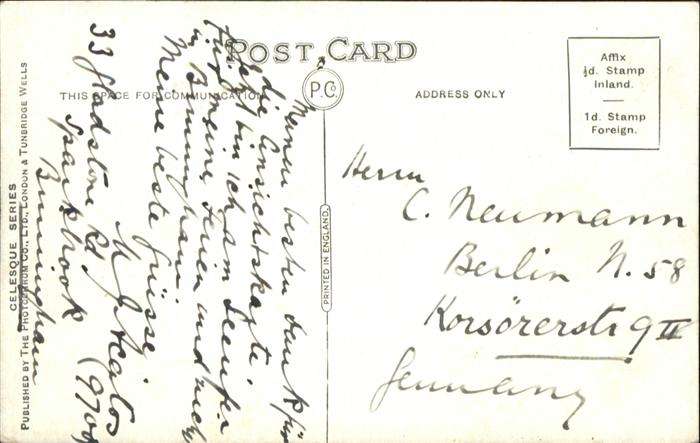 POST CARD
THIS SPACE FOR COMMUNICATION
ADDRESS ONLY
P.C.
Affix
½d. Stamp
Inland.
1d. Stamp
Foreign.
CELESQUE SERIES
PUBLISHED BY THE PHOTOCHROM CO., LTD., LONDON & TUNBRIDGE WELLS
PRINTED IN ENGLAND.
Meinen besten Dank für
die Ansichtskarte.
bin ich am
für meine und
in Birmingham.
Meine beste Grüsse
33 Gladstone Rd
Sparkbrook
Birmingham
Herrn
C. Neumann
Berlin N. 58
Korsörerstr 9 II
Germany